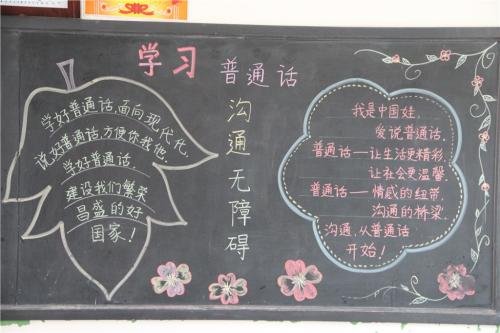 学习 普通话
沟通无障碍
学好普通话,面向现代化,
说好普通话,方便你我他,
学好普通话
建设我们繁荣
昌盛的好
国家!
我是中国娃,
爱说普通话,
普通话——让生活更精彩,
让社会更温馨
普通话——情感的纽带,
沟通的桥梁,
沟通,从普通话
开始!